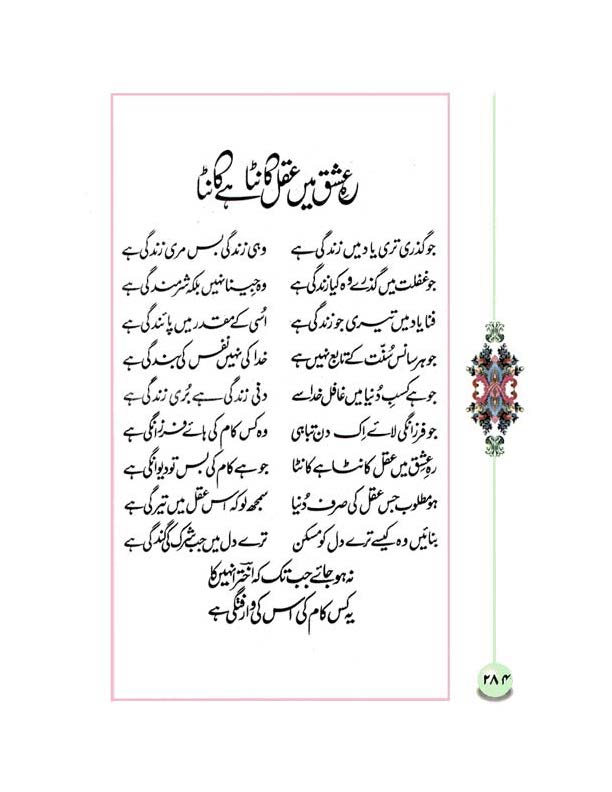 رہِ عشق میں عقل کانٹا ہے کانٹا
جو گذری تری یاد میں زندگی ہے وہی زندگی بس مری زندگی ہے
جو غفلت میں گذرے وہ کیا زندگی ہے وہ جینا نہیں بلکہ شرمندگی ہے
فنا یاد میں تیری جو زندگی ہے اُسی کے مقدر میں پائندگی ہے
جو ہر سانس سُنّت کے تابع نہیں ہے خدا کی نہیں نفس کی بندگی ہے
جو ہے کسبِ دُنیا میں غافل خدا سے دنی زندگی ہے بُری زندگی ہے
جو فرزانگی لائے اِک دن تباہی وہ کس کام کی ہائے فرزانگی ہے
رہِ عشق میں عقل کانٹا ہے کانٹا جو ہے کام کی بس تو دیوانگی ہے
ہو مطلوب جس عقل کی صرف دُنیا سمجھ لو کہ اس عقل میں تیرگی ہے
بنائیں وہ کیسے ترے دل کو مسکن ترے دل میں جب شرک کی گندگی ہے
نہ ہو جائے جب تک کہ اخترؔ انہیں کا
یہ کس کام کی اس کی وارفتگی ہے
۲۸۴